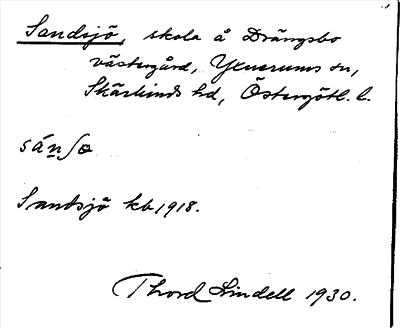 Sandsjö, skola å Drängsbo
västergård, Yxnerums sn,
Skärkinds hd, Östergötl. l.
sán̲ʃɷ
Sandsjö kb 1918.
Thord Lindell 1930.